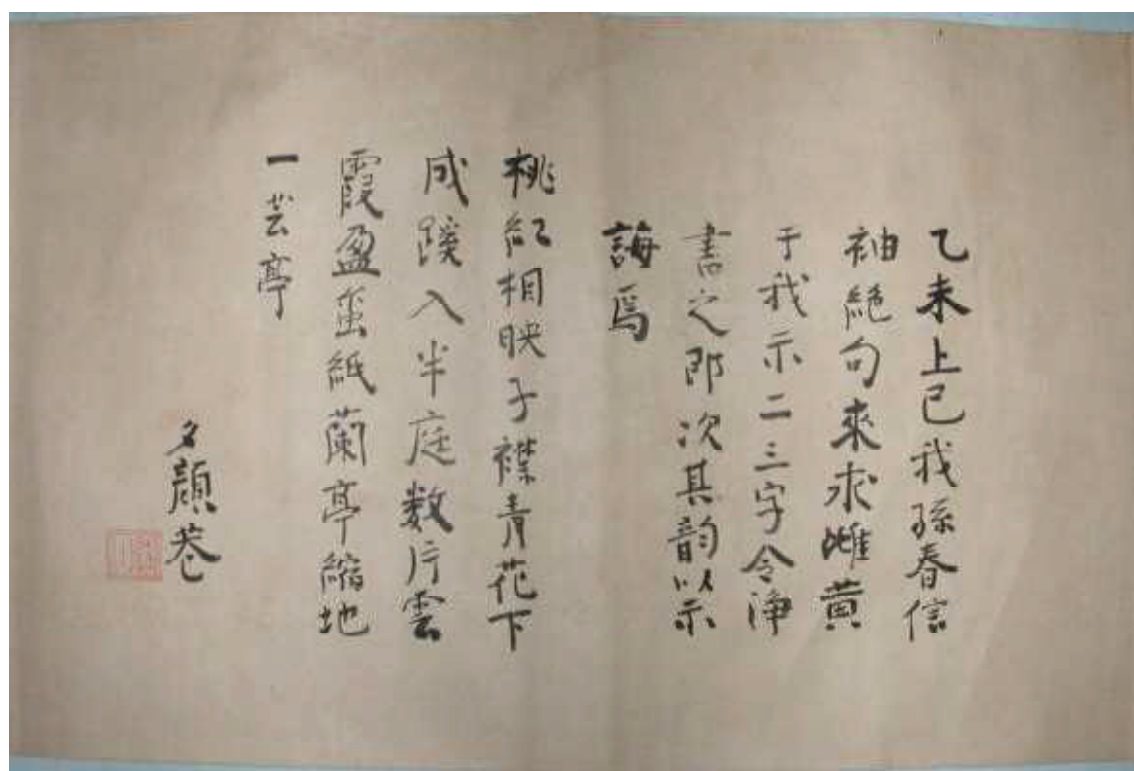 乙未上巳我孫春信
袖絶句來求雌黄
于我示二三字令浄
書之即次其韵以示
誨焉
桃紅相映子襟青花下
成蹊入半庭数片雲
霞盈蚕紙蘭亭縮地
一芸亭
夕顔巷